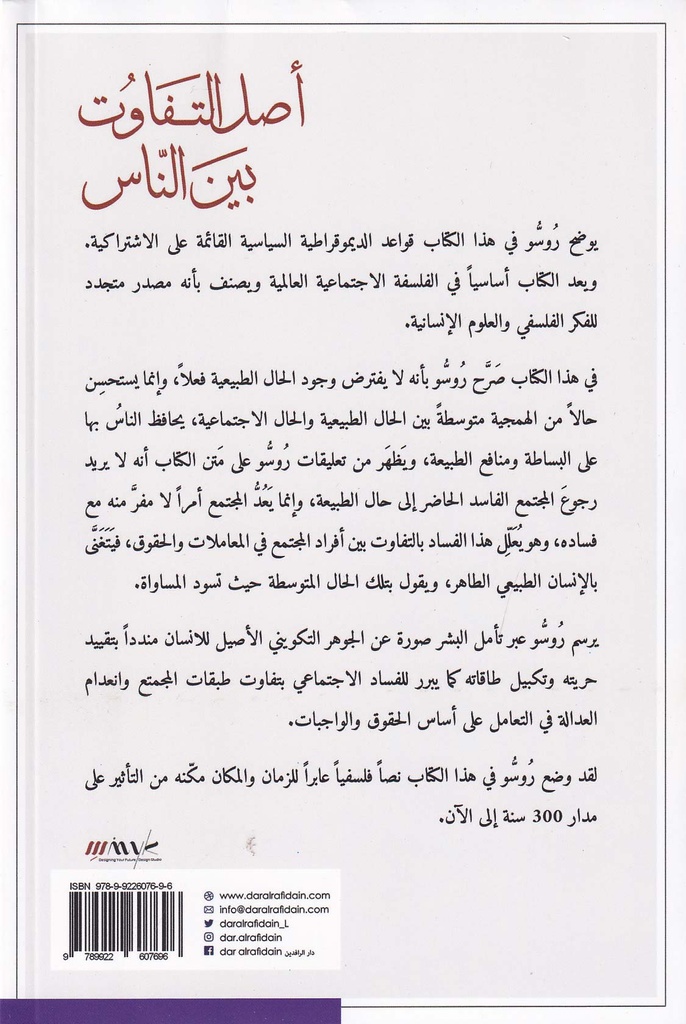 أصل التفاوُت
بَينَ النّاس
يوضح رُوسُّو في هذا الكتاب قواعد الديموقراطية السياسية القائمة على الاشتراكية.
ويعد الكتاب أساسياً في الفلسفة الاجتماعية العالمية ويصنف بأنه مصدر متجدد
للفكر الفلسفي والعلوم الإنسانية.
في هذا الكتاب صَرَّح رُوسُّو بأنه لا يفترض وجود الحال الطبيعية فعلاً، وإنما يستحسِن
حالاً من الهمجية متوسطةً بين الحال الطبيعية والحال الاجتماعية، يحافظ الناسُ بها
على البساطة ومنافع الطبيعة، ويَظهَر من تعليقات رُوسُّو على مَتن الكتاب أنه لا يريد
رجوعَ المجتمع الفاسد الحاضر إلى حال الطبيعة، وإنما يَعُدُّ المجتمع أمراً لا مفرَّ منه مع
فساده، وهو يُعَلِّل هذا الفساد بالتفاوت بين أفراد المجتمع في المعاملات والحقوق، فيَتَغَنَّى
بالإنسان الطبيعي الطاهر، ويقول بتلك الحال المتوسطة حيث تسود المساواة.
يرسم رُوسُّو عبر تأمل البشر صورة عن الجوهر التكويني الأصيل للانسان مندداً بتقييد
حريته وتكبيل طاقاته كما يبرر للفساد الاجتماعي بتفاوت طبقات المجمتع وانعدام
العدالة في التعامل على أساس الحقوق والواجبات.
لقد وضع رُوسُّو في هذا الكتاب نصاً فلسفياً عابراً للزمان والمكان مكّنه من التأثير على
مدار 300 سنة إلى الآن.
Designing Your Future / Design Studio
ISBN 978-9-9226076-9-6
9 789922 607696
www.daralrafidain.com
info@daralrafidain.com
daralrafidain_L
dar.alrafidain
dar alrafidain دار الرافدين